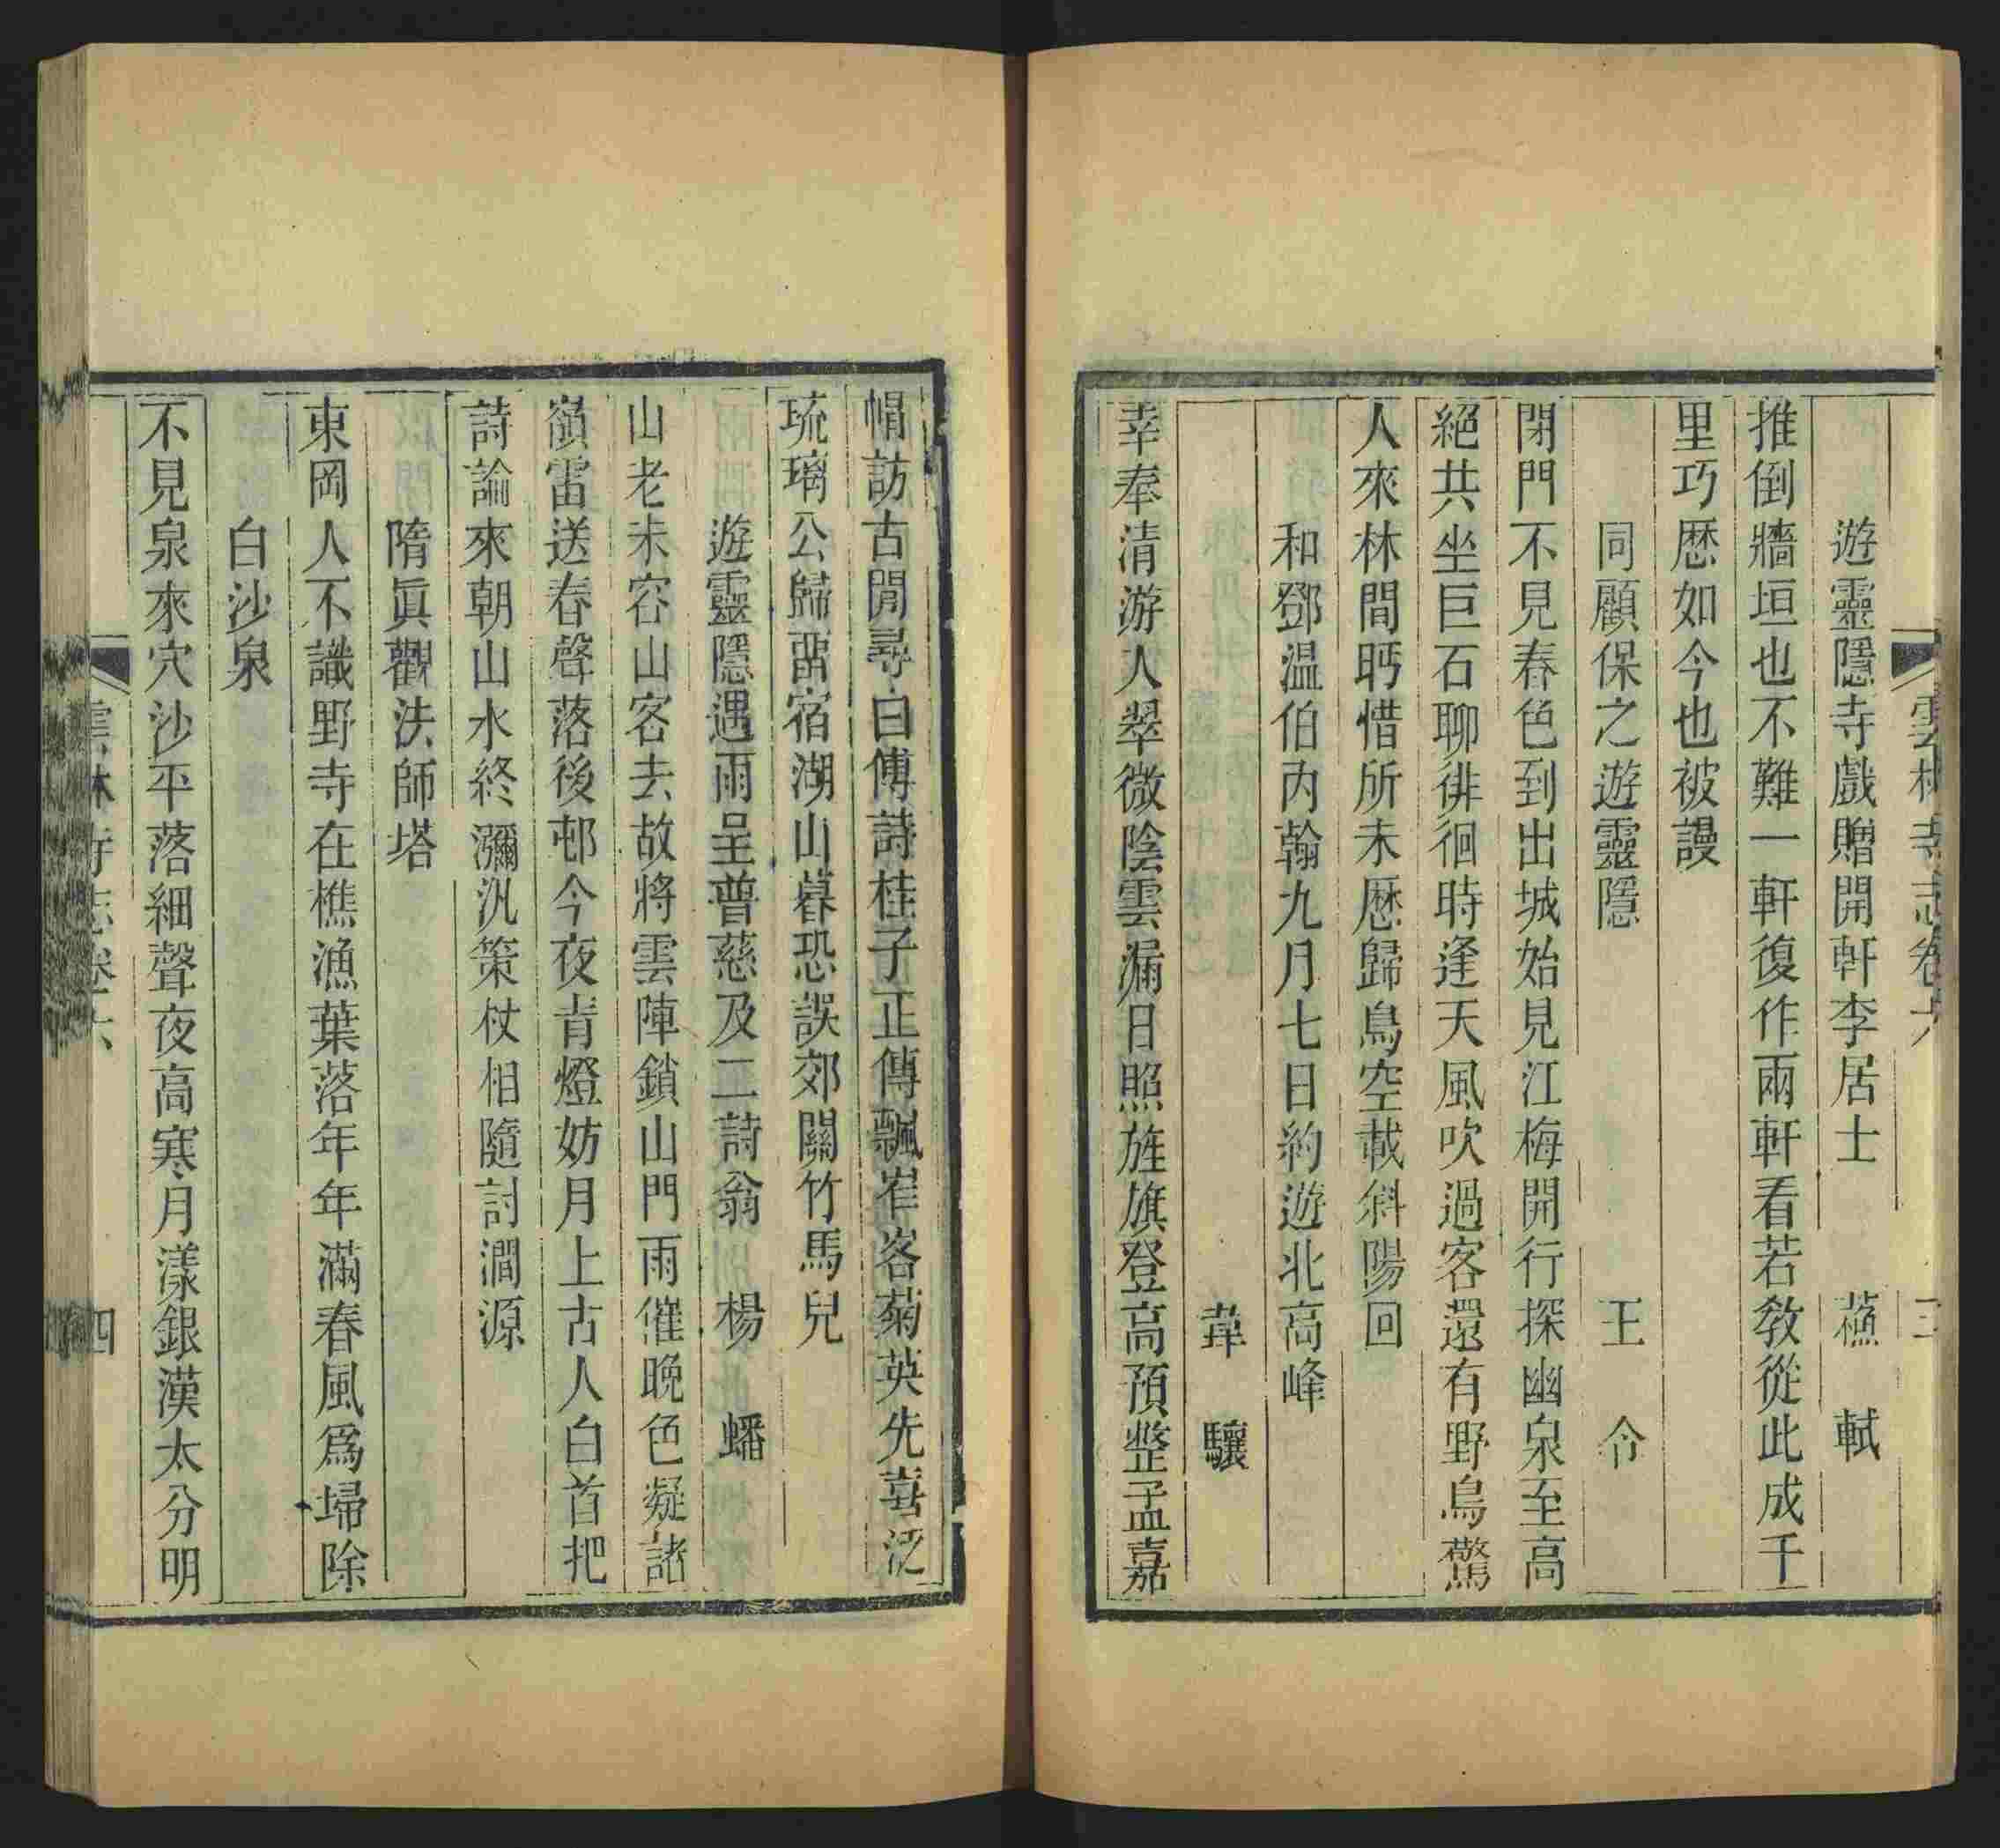 雲林寺志卷六 三
遊靈隱寺戲贈開軒李居士 蘓軾
推倒牆垣也不難一軒復作兩軒看若敎從此成千
里巧歷如今也被謾
同顧保之遊靈隱 王令
閉門不見春色到出城始見江梅開行探幽泉至高
絕共坐巨石聊徘徊時逢天風吹過客還有野鳥驚
人來林間眄惜所未歷歸鳥空載斜陽回
和鄧温伯内翰九月七日約遊北高峰
韋驤
幸奉清游人翠微陰雲漏日照旌旗登高預整孟嘉
帽訪古閒尋白傅詩桂子正傳飄嵂客菊英先喜泛
琉璃公歸畱宿湖山暮恐誤郊關竹馬兒
遊靈隱遇雨呈普慈及二詩翁 楊蟠
山老未容山客去故將雲陣鎖山門雨催晚色凝諸
嶺雷送春聲落後邨今夜青燈妨月上古人白首把
詩論來朝山水終瀰汎策杖相隨討澗源
隋眞觀法師塔
東岡人不識野寺在樵漁葉落年年滿春風爲埽除
白沙泉
不見泉來穴沙平落細聲夜高寒月漾銀漢太分明
雲林寺志卷六 四